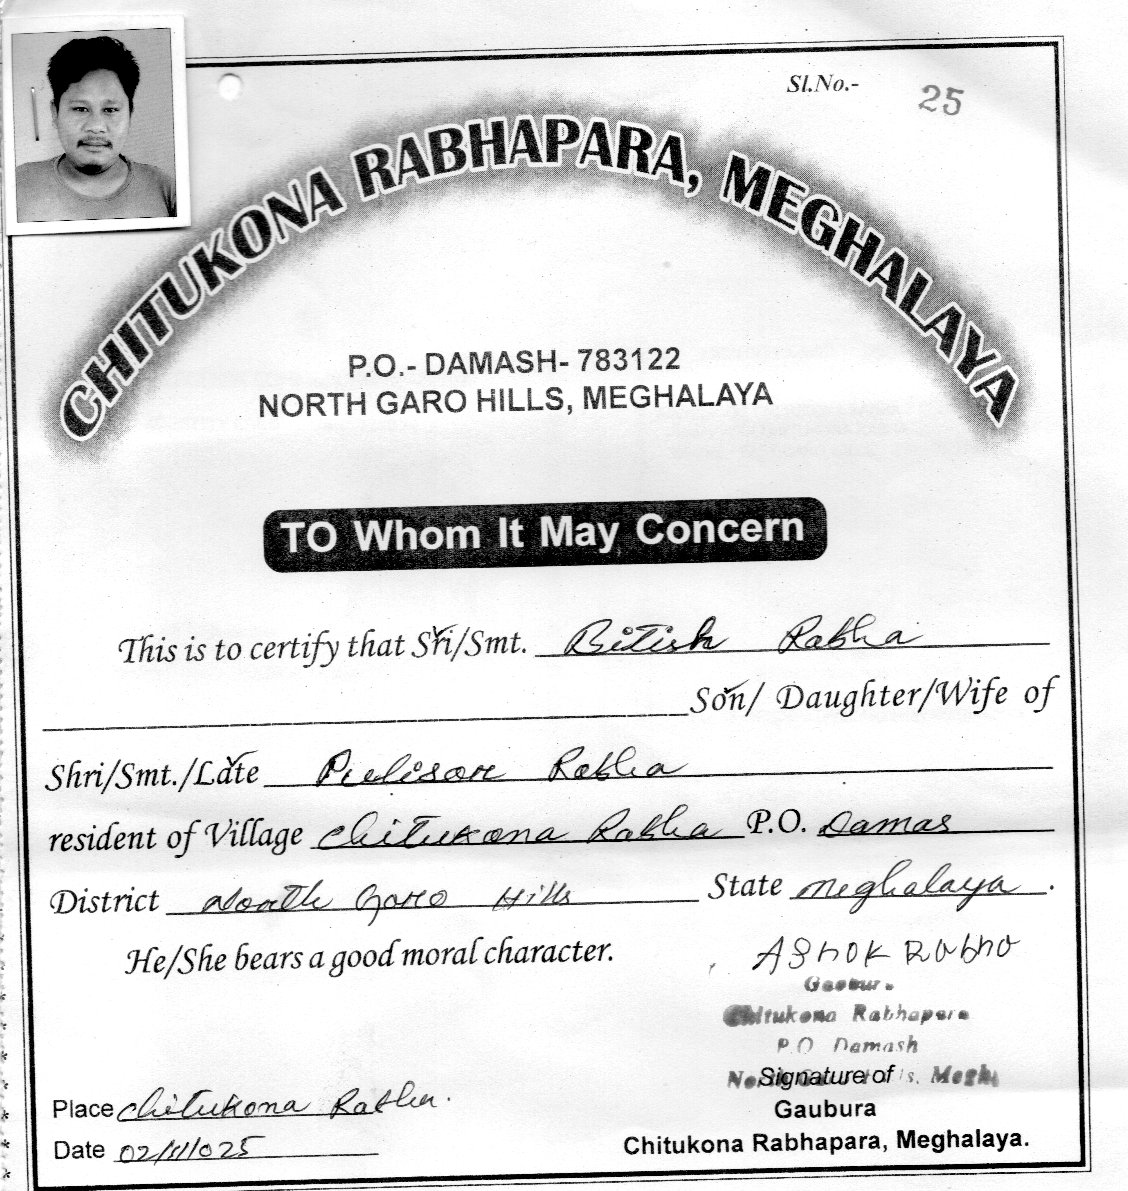 Sl.No.- 25
CHITUKONA RABHAPARA, MEGHALAYA
P.O.- DAMASH- 783122
NORTH GARO HILLS, MEGHALAYA
TO Whom It May Concern
This is to certify that Sri/Smt. Bitish Rabha
Son/ Daughter/Wife of
Shri/Smt./Late Pulison Rabha
resident of Village Chitukona Rabha P.O. Damas
District North Garo Hills State Meghalaya.
He/She bears a good moral character.
ASHOK RABHA
Chitukona Rabhapara
P.O Damash
Signature of
Gaubura
Chitukona Rabhapara, Meghalaya.
Place Chitukona Rabha.
Date